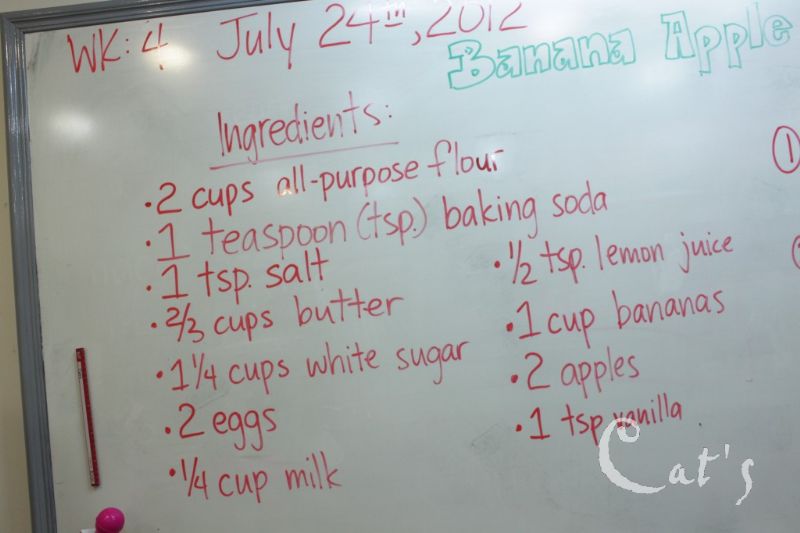 WK: 4 July 24th, 2012
Banana Apple
Ingredients:
• 2 cups all-purpose flour
• 1 teaspoon (tsp.) baking soda
• 1 tsp. salt
• 2/3 cups butter
• 1 1/4 cups white sugar
• 2 eggs
• 1/4 cup milk
• 1/2 tsp. lemon juice
• 1 cup bananas
• 2 apples
• 1 tsp vanilla
①
Cat's